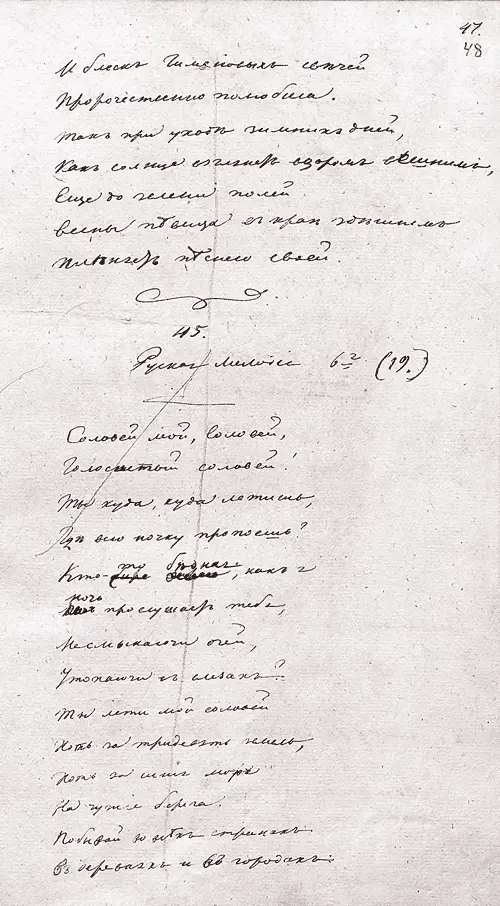 47.
48
И блескъ Гименовыхъ свѣчей
Пророчественно полюбила.
Такъ при уходѣ зимнихъ дней,
Какъ солнце взглянетъ взоромъ вешнимъ,
Еще до зелени полей
Весны пѣвица въ краѣ здѣшнемъ
Плѣняетъ пѣснею своей.
45.
Руская Мелодія 6я (19.)
Соловей мой, соловей,
Голосистый соловей!
Ты куда, куда летишь,
Гдѣ всю ночку пропоешь?
Кто-то бѣдная, какъ я
ночь прослушаетъ тебя,
Несмыкаючи очей,
Утопаючи въ слезахъ?
Ты лети мой соловей
Хоть за тридевять земель,
Хоть за синія моря
На чужіе берега.
Побывай во всѣхъ странахъ
Въ деревняхъ и въ городахъ: